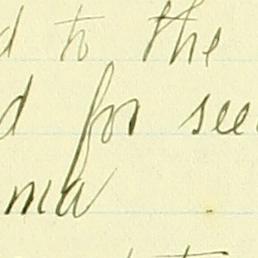 d to the
d for see
ma